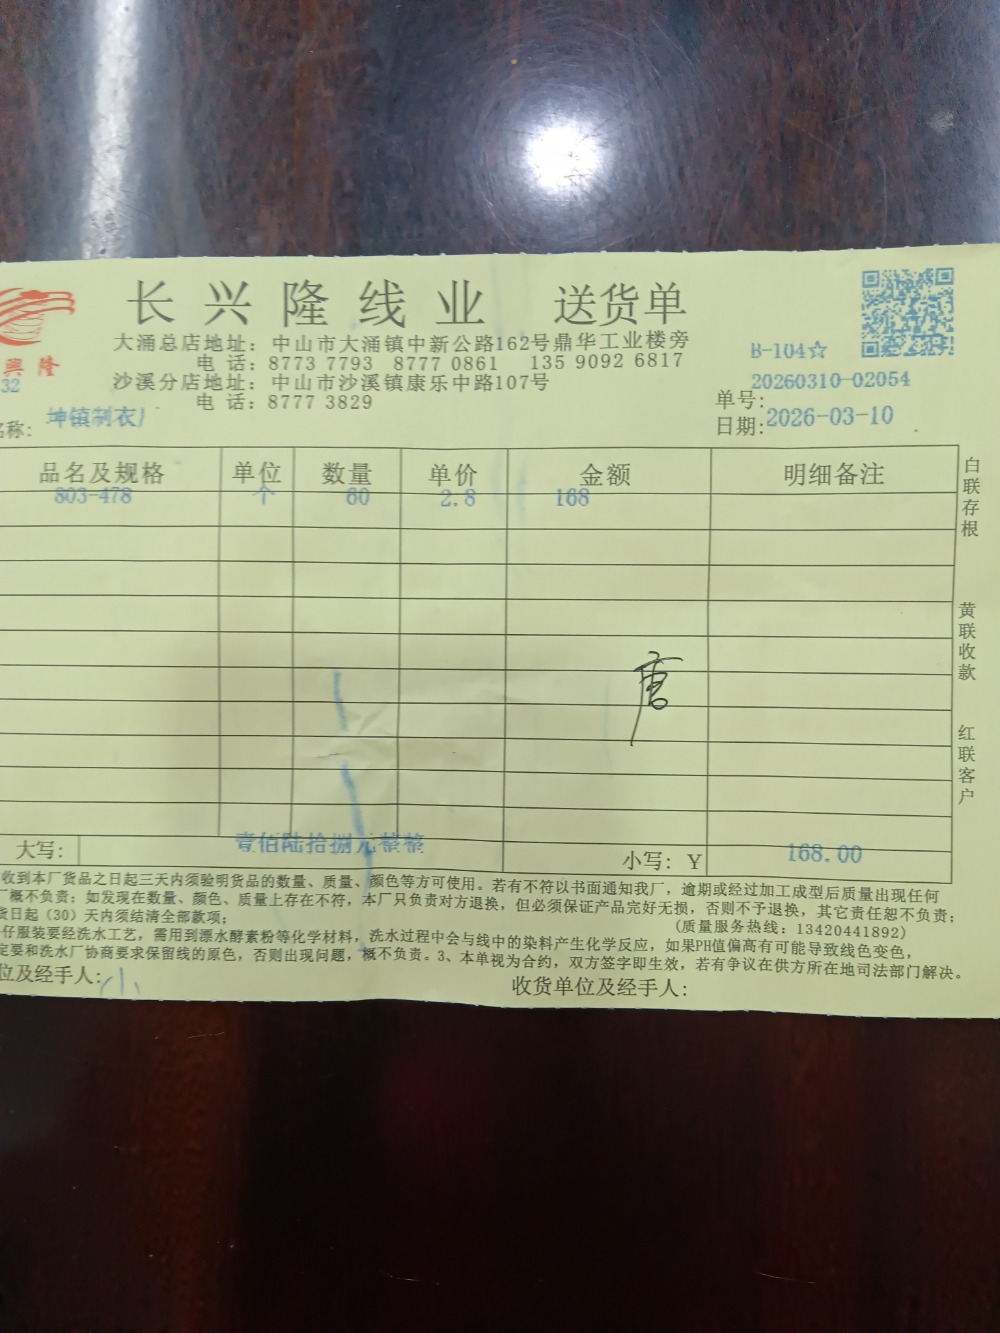 长兴隆线业 送货单
興隆
大涌总店地址：中山市大涌镇中新公路162号鼎华工业楼旁
电 话：8773 7793 8777 0861 135 9092 6817
B-104☆
沙溪分店地址：中山市沙溪镇康乐中路107号
32
20260310-02054
电 话：8777 3829
单号：
名称： 坤镇制衣厂
日期：2026-03-10
品名及规格 单位 数量 单价 金额 明细备注
803-478 个 60 2.8 168
白联存根
黄联收款
红联客户
唐
大写： 壹佰陆拾捌元整整 小写：Y 168.00
收到本厂货品之日起三天内须验明货品的数量、质量、颜色等方可使用。若有不符以书面通知我厂，逾期或经过加工成型后质量出现任何
厂概不负责；如发现在数量、颜色、质量上存在不符，本厂只负责对方退换，但必须保证产品完好无损，否则不予退换，其它责任恕不负责；
货日起（30）天内须结清全部款项；
(质量服务热线：13420441892)
仔服装要经洗水工艺，需用到漂水酵素粉等化学材料，洗水过程中会与线中的染料产生化学反应，如果PH值偏高有可能导致线色变色，
定要和洗水厂协商要求保留线的原色，否则出现问题，概不负责。3、本单视为合约，双方签字即生效，若有争议在供方所在地司法部门解决。
位及经手人：
收货单位及经手人：